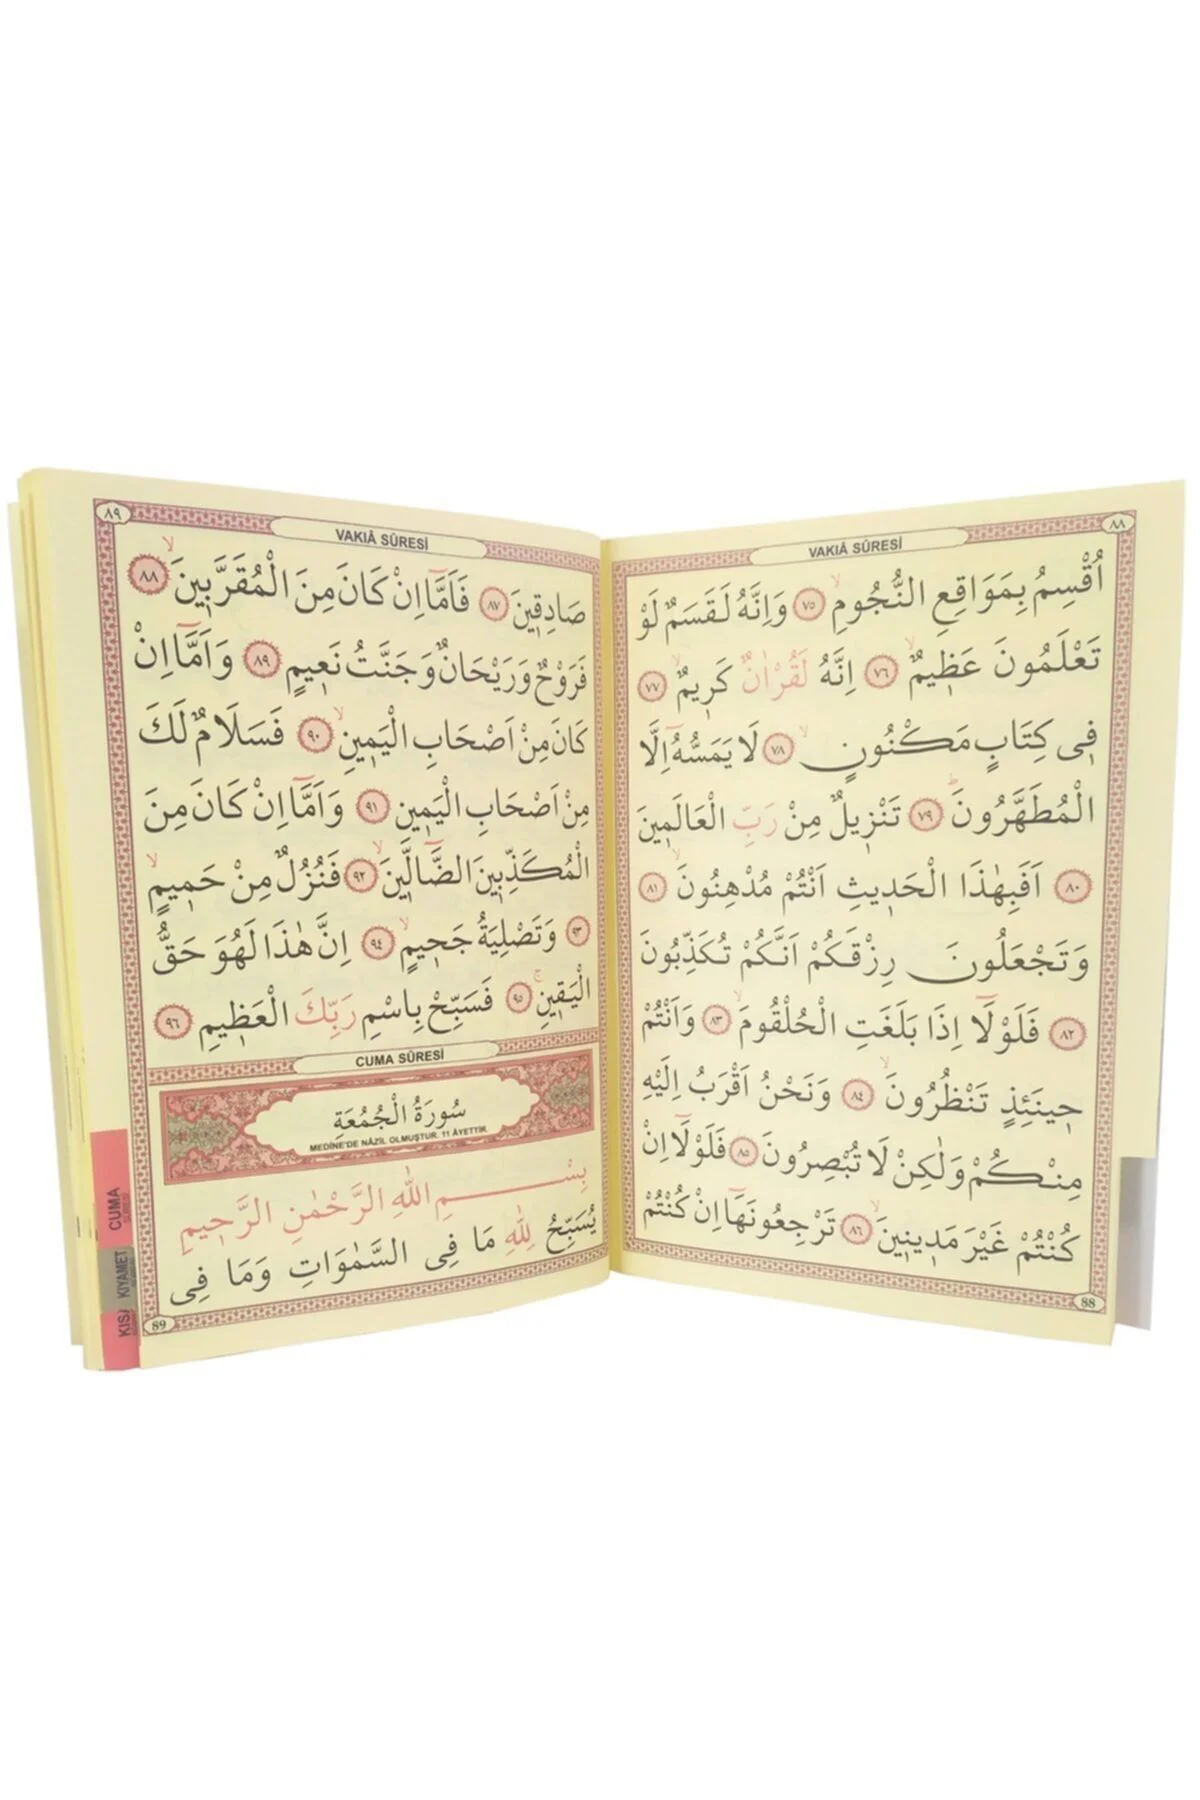 ٨٨
VAKIÂ SÛRESİ
اُقْسِمُ بِمَوَاقِعِ النُّجُومِۙ ﴿٧٥﴾ وَاِنَّهُ لَقَسَمٌ لَوْ
تَعْلَمُونَ عَظ۪يمٌۙ ﴿٧٦﴾ اِنَّهُ لَقُرْاٰنٌ كَر۪يمٌۙ ﴿٧٧﴾
ف۪ي كِتَابٍ مَكْنُونٍۙ ﴿٧٨﴾ لَا يَمَسُّهُٓ اِلَّا
الْمُطَهَّرُونَۜ ﴿٧٩﴾ تَنْز۪يلٌ مِنْ رَبِّ الْعَالَم۪ينَ
﴿٨٠﴾ اَفَبِهٰذَا الْحَد۪يثِ اَنْتُمْ مُدْهِنُونَۙ ﴿٨١﴾
وَتَجْعَلُونَ رِزْقَكُمْ اَنَّكُمْ تُكَذِّبُونَ
﴿٨٢﴾ فَلَوْلَٓا اِذَا بَلَغَتِ الْحُلْقُومَۙ ﴿٨٣﴾ وَاَنْتُمْ
ح۪ينَئِذٍ تَنْظُرُونَۙ ﴿٨٤﴾ وَنَحْنُ اَقْرَبُ اِلَيْهِ
مِنْكُمْ وَلٰكِنْ لَا تُبْصِرُونَ ﴿٨٥﴾ فَلَوْلَٓا اِنْ
كُنْتُمْ غَيْرَ مَد۪ين۪ينَۙ ﴿٨٦﴾ تَرْجِعُونَهَٓا اِنْ كُنْتُمْ
88
٨٩
VAKIÂ SÛRESİ
صَادِق۪ينَ ﴿٨٧﴾ فَاَمَّٓا اِنْ كَانَ مِنَ الْمُقَرَّب۪ينَۙ ﴿٨٨﴾
فَرَوْحٌ وَرَيْحَانٌ وَجَنَّتُ نَع۪يمٍ ﴿٨٩﴾ وَاَمَّٓا اِنْ
كَانَ مِنْ اَصْحَابِ الْيَم۪ينِۙ ﴿٩٠﴾ فَسَلَامٌ لَكَ
مِنْ اَصْحَابِ الْيَم۪ينِ ﴿٩١﴾ وَاَمَّٓا اِنْ كَانَ مِنَ
الْمُكَذِّب۪ينَ الضَّٓالّ۪ينَۙ ﴿٩٢﴾ فَنُزُلٌ مِنْ حَم۪يمٍۙ
﴿٩٣﴾ وَتَصْلِيَةُ جَح۪يمٍۙ ﴿٩٤﴾ اِنَّ هٰذَا لَهُوَ حَقُّ
الْيَق۪ينِۚ ﴿٩٥﴾ فَسَبِّحْ بِاسْمِ رَبِّكَ الْعَظ۪يمِ ﴿٩٦﴾
CUMA SÛRESİ
سُورَةُ الْجُمُعَةِ
MEDİNE'DE NÂZİL OLMUŞTUR. 11 ÂYETTİR.
بِسْمِ اللّٰهِ الرَّحْمٰنِ الرَّح۪يمِ
يُسَبِّحُ لِلّٰهِ مَا فِي السَّمٰوَاتِ وَمَا فِي
89
CUMA
SÛRESİ
KIYAMET
KISA